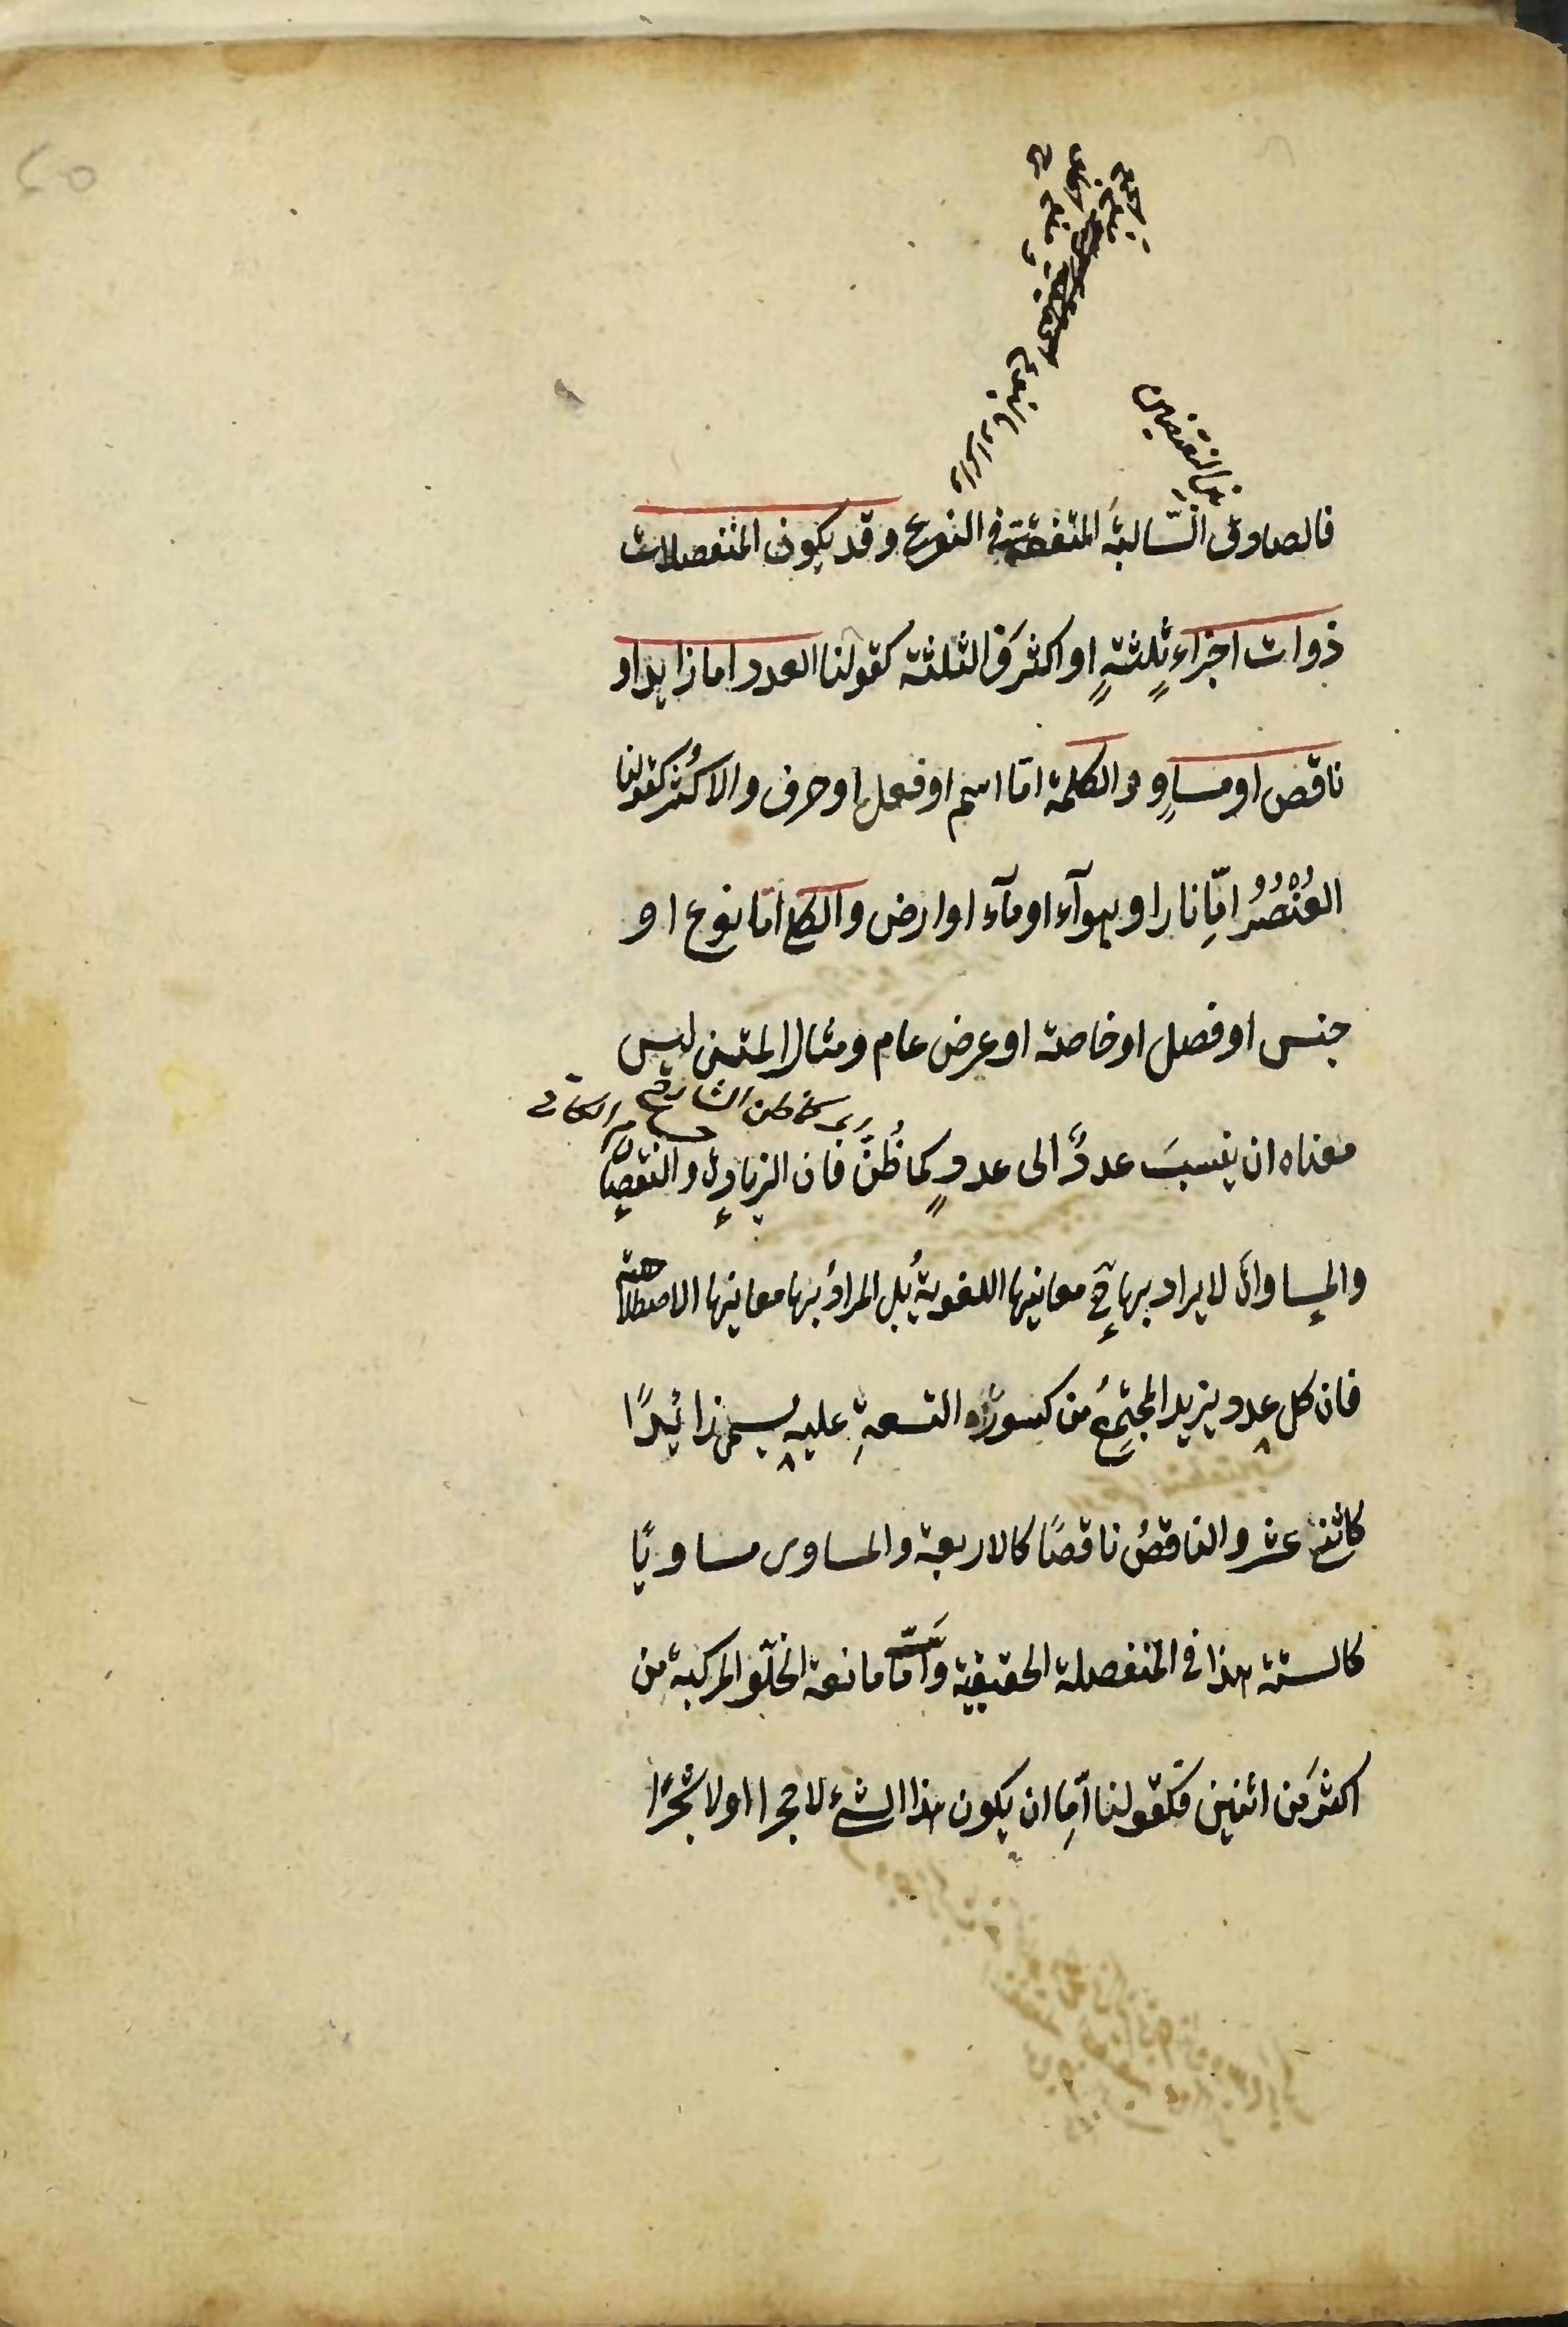 عن النقيضين
فالصادق السالبة المتفقة في النوع وقد يكون المنفصلات
ذوات اجزاء ثلثةٍ او اكثر فالثلثة كقولنا العدد اما زايد او
ناقص او مساوٍ و الكلمة امّا اسم او فعل او حرف والاكثر كقولنا
العُنْصُرُ امّا نار او هوآء او مآء او ارض والكلي امّا نوع او
جنس او فصل او خاصة او عرض عام ومثال المتن ليس
كما ظن الشارح الكاتي
معناه ان ينسبَ عددٌ الى عددٍ كما ظُنَّ فان الزيادة والنقصان
والمساواة لا يراد بها معانيها اللغوية بل المراد بها معانيها الاصطلاحية
فان كل عدد يزيد المجتمعُ من كسوره التسعةِ عليه يسمى زائدًا
كاثني عشر والناقصُ ناقصًا كالاربعة والمساوى مساويًا
كالستة هذا في المنفصلة الحقيقية وَامّا مانعة الخلّو المركبة من
اكثر من اثنين فكقولنا اما ان يكون هذا الشئ لا حجرا او لا شجرًا